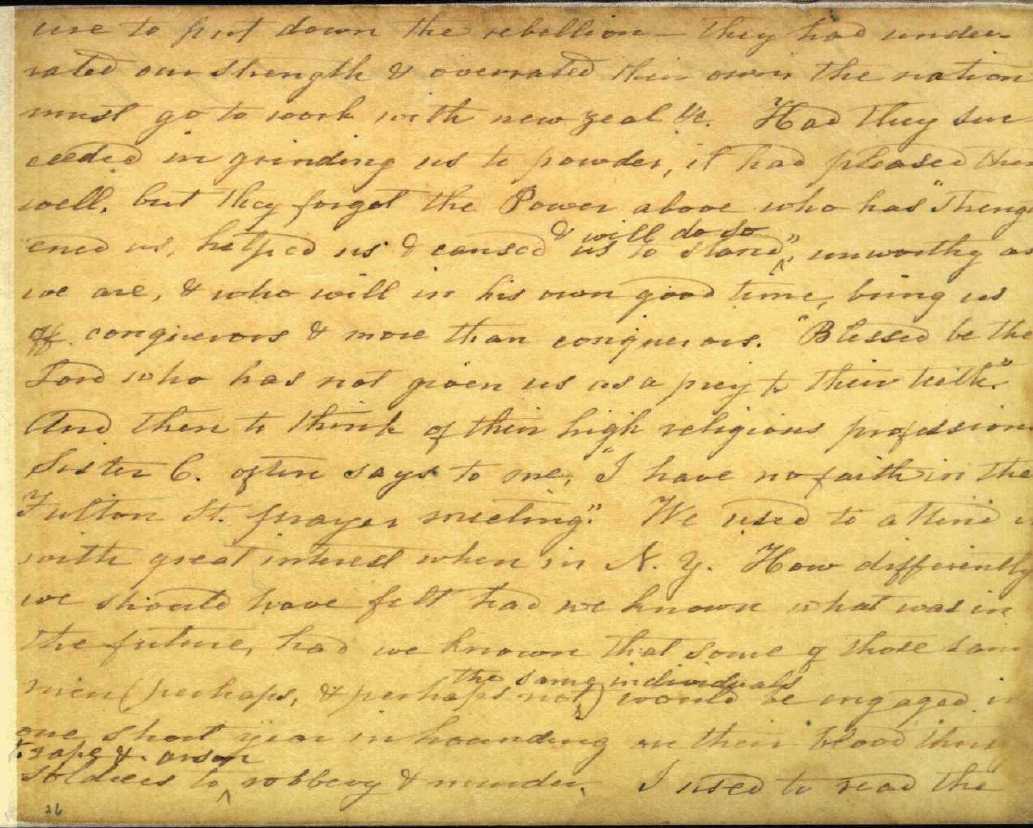 ure to put down the rebellion — they had under-
rated our strength & overrated their own the nation
must go to work with new zeal &c. Had they suc
ceeded in grinding us to powder, it had pleased them
well, but they forgot the Power above who has "streng
& will do so
ened us, helped us & caused us to stand", unworthy as
we are, & who will in his own good time, bring us
off conquerors & more than conquerors. "Blessed be the
Lord who has not given us as a prey to their teeth."
And then to think of their high religious profession
Sister C. often says to me, "I have no faith in the
Fulton St. prayer meeting." We used to attend i
with great interest when in N. Y. How differently
we should have felt had we known what was in
the future, had we known that some of those sam
the same individuals
men (perhaps, & perhaps not) would be engaged in
one short year in hounding on their blood thirs
rape & arson
soldiers to robbery & murder. I used to read the
26